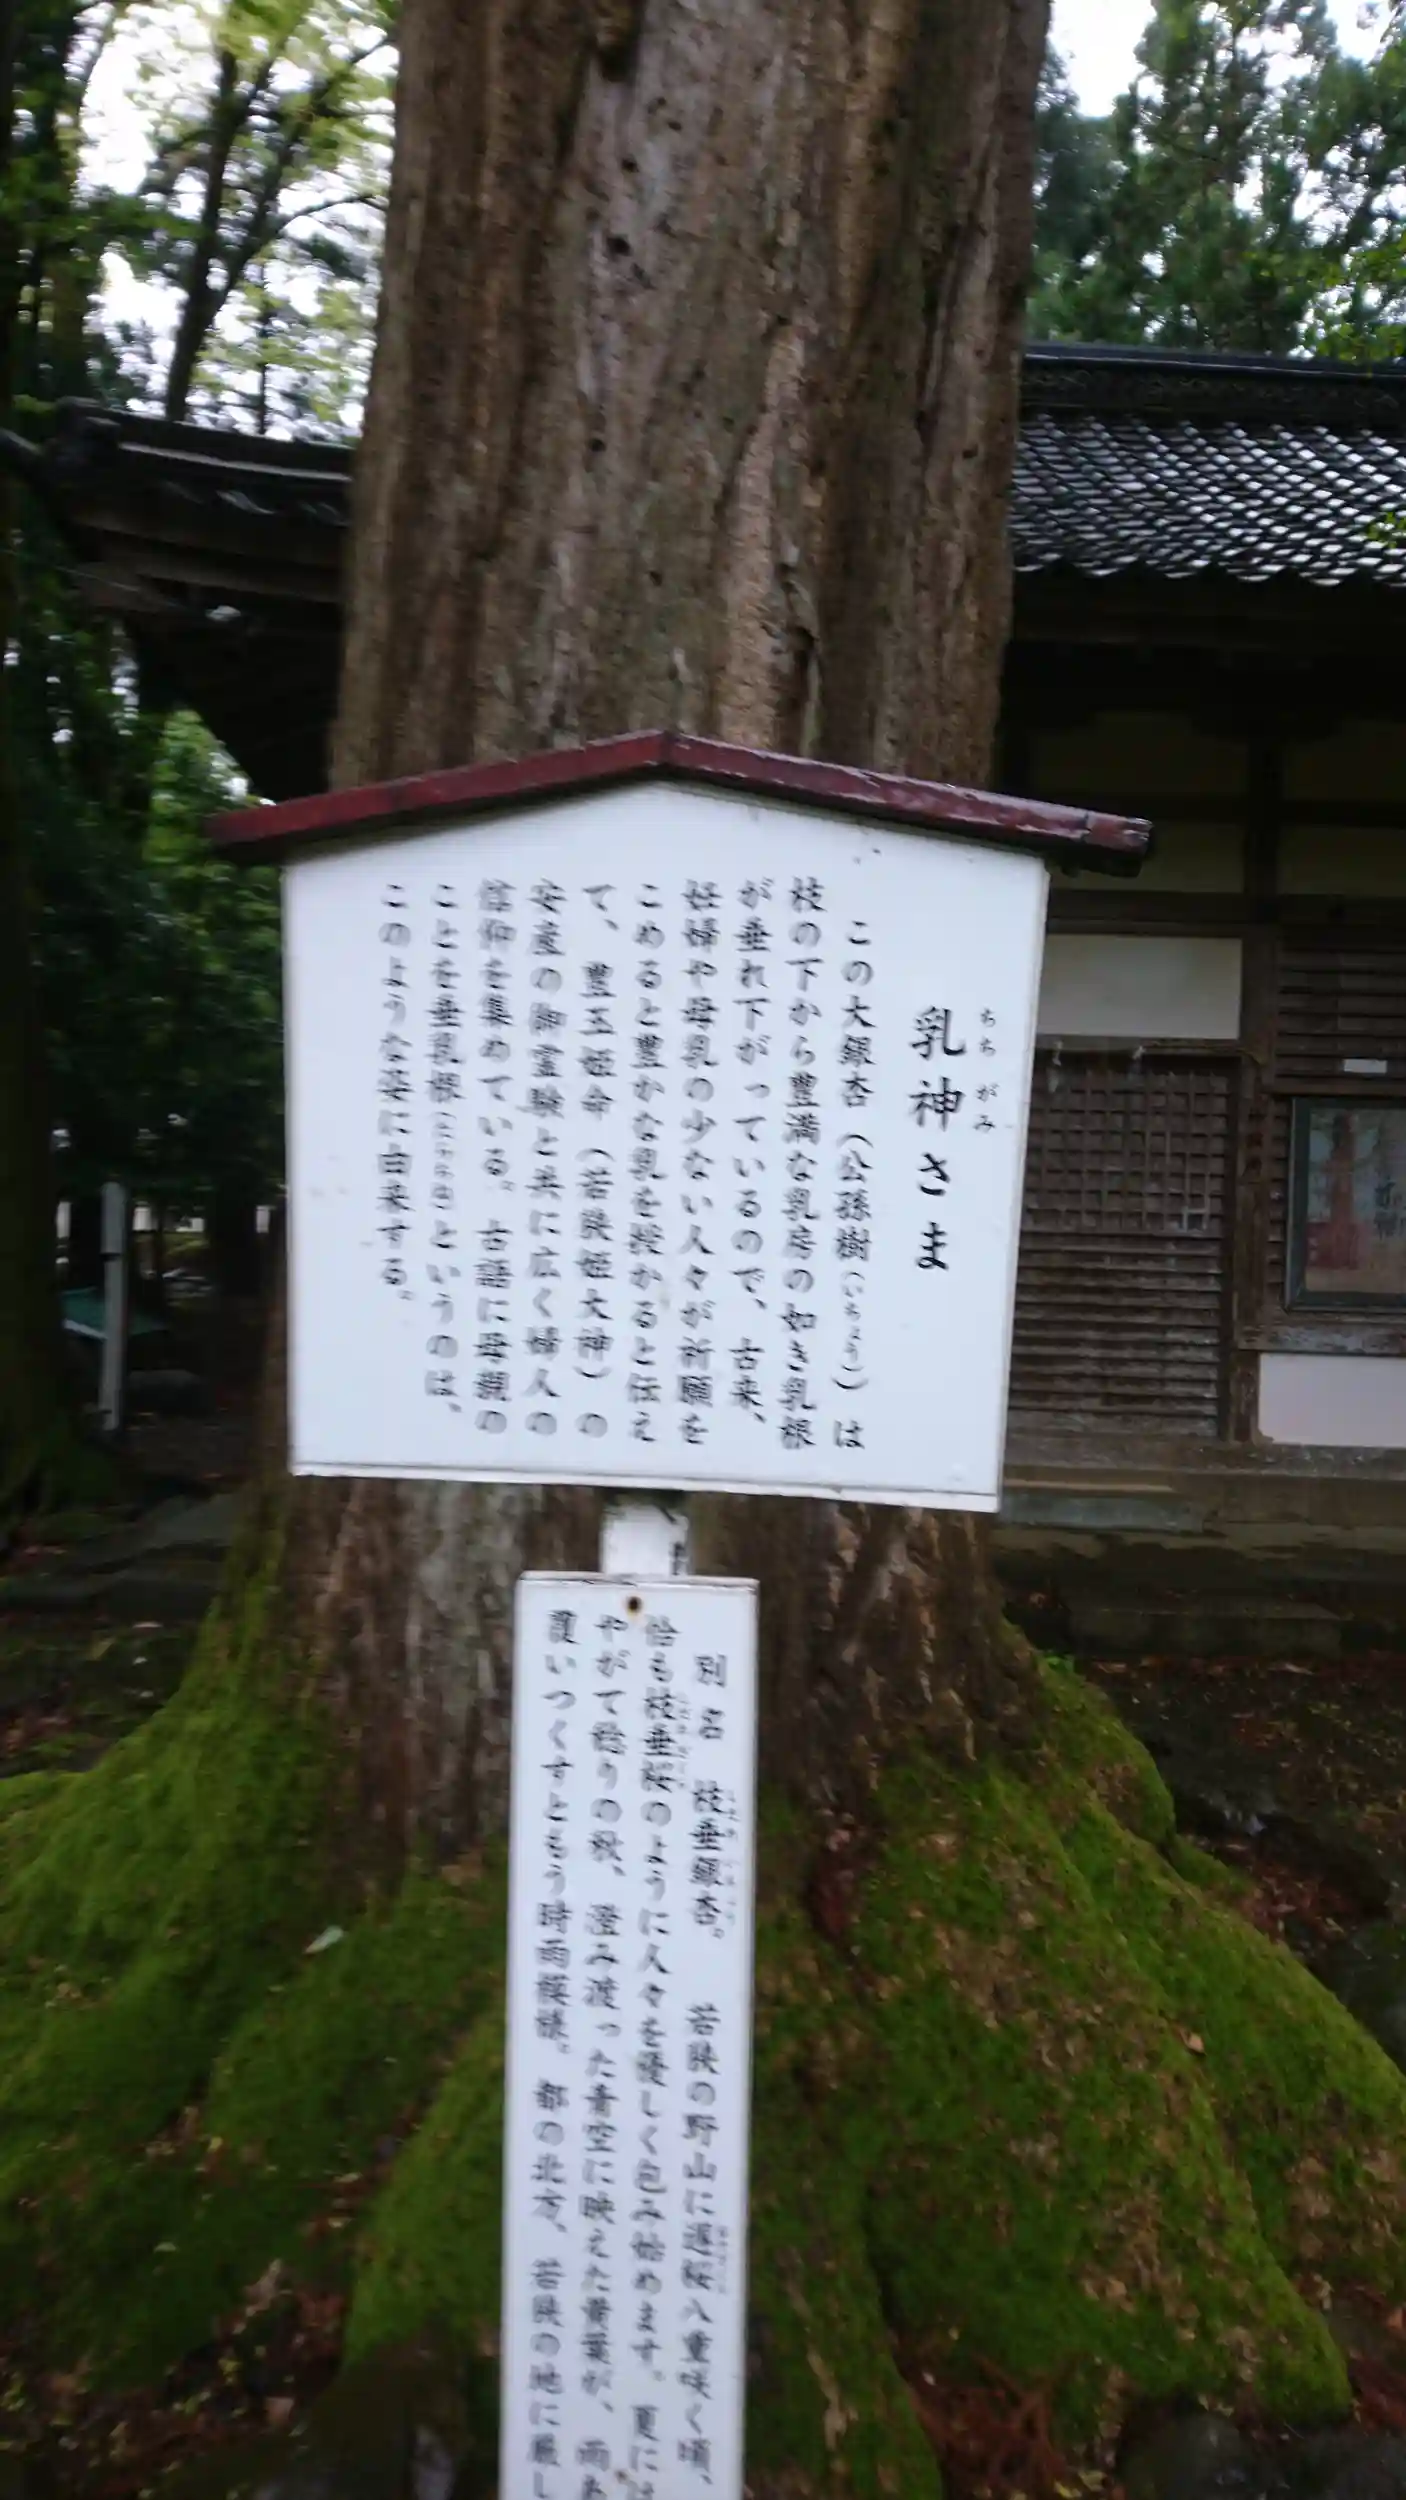 乳神さま
ちち がみ
この大銀杏（公孫樹（いちょう））は
枝の下から豊満な乳房の如き乳根
が垂れ下がっているので、古来、
妊婦や母乳の少ない人々が祈願を
こめると豊かな乳を授かると伝え
て、豊玉姫命（若狭姫大神）の
安産の御霊験と共に広く婦人の
信仰を集めている。古語に母親の
ことを垂乳根（たらちね）というのは、
このような姿に由来する。
別名 枝垂銀杏。 若狭の野山に遅桜八重咲く頃、
恰も枝垂桜のように人々を優しく包み始めます。夏には
やがて稔りの秋、澄み渡った青空に映えた黄葉が、雨あ
覆いつくすともう時雨模様。都の北方、若狭の地に厳し